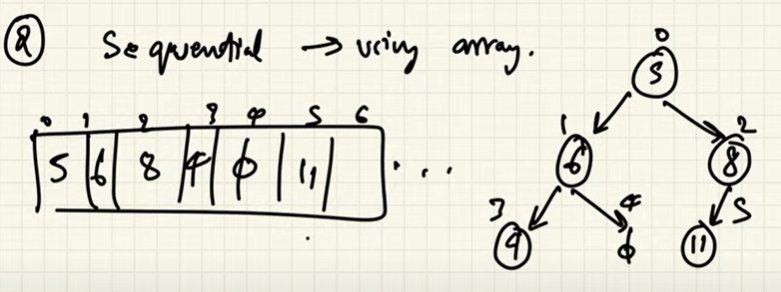 ② Sequential → using array.
0 1 2 3 4 5 6
5 6 8 4 φ 11 ...
0
5
1 2
6 8
3 4 5
9 φ 11